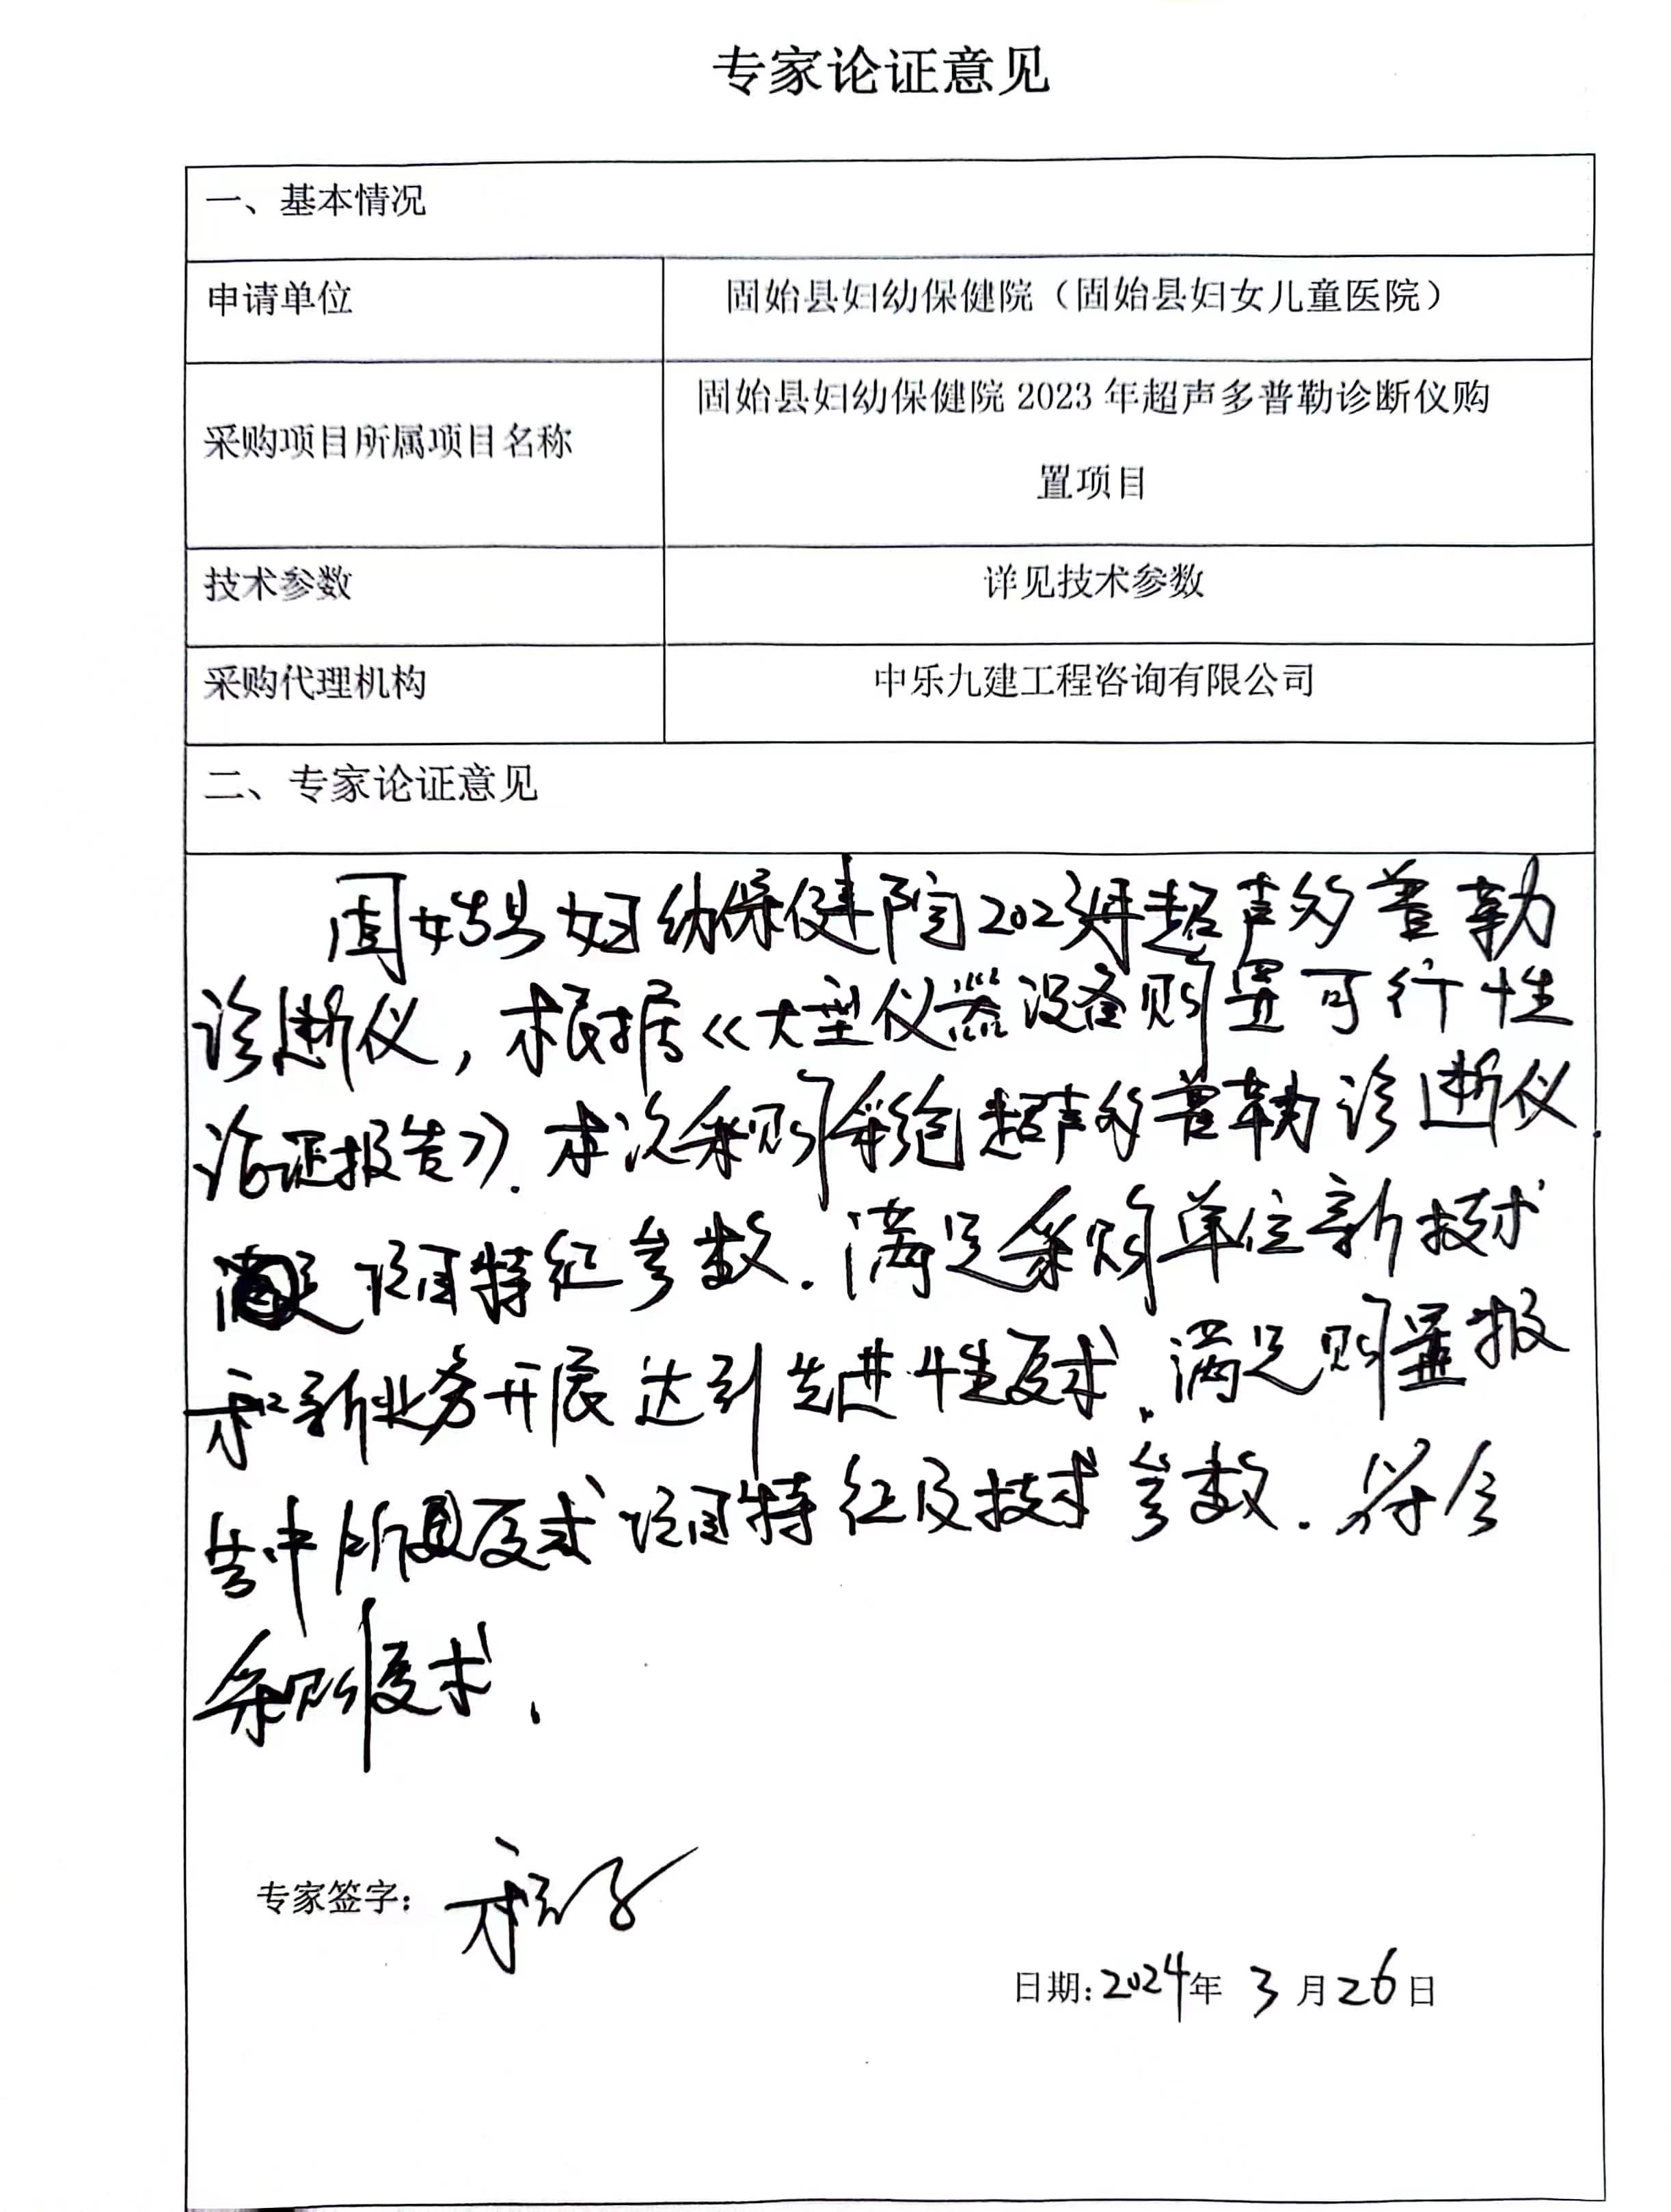 专家论证意见
一、基本情况
申请单位
固始县妇幼保健院（固始县妇女儿童医院）
采购项目所属项目名称
固始县妇幼保健院 2023 年超声多普勒诊断仪购
置项目
技术参数
详见技术参数
采购代理机构
中乐九建工程咨询有限公司
二、专家论证意见
固始县妇幼保健院2023年超声多普勒
诊断仪，根据《大型仪器设备购置可行性
论证报告》.本次采购彩色超声多普勒诊断仪.
满足项目特征参数.满足采购单位新技术
和新业务开展达到先进性要求.满足购置报
告中所要求项目特征及技术参数.符合
采购要求.
专家签字：
日期：2024年 3 月 26 日